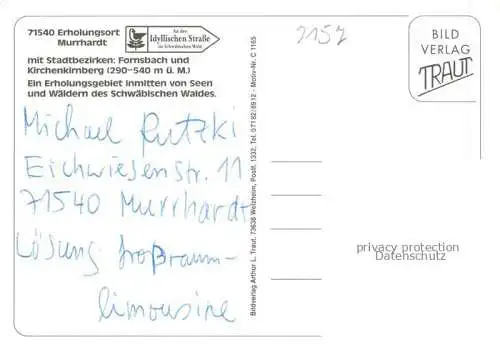 71540 Erholungsort
Murrhardt
An der
Idyllischen Straße
im Schwäbischen Wald
mit Stadtbezirken: Fornsbach und
Kirchenkirnberg (290–540 m ü. M.)
Ein Erholungsgebiet inmitten von Seen
und Wäldern des Schwäbischen Waldes.
Michael Rutzki
Eichwiesenstr. 11
71540 Murrhardt
Lösung: Großraum-
limousine
Bildverlag Arthur L. Traut, 73636 Welzheim, Postf. 1332, Tel. 07182/8912 - Motiv-Nr. C 1165
2157
BILD
VERLAG
TRAUT
privacy protection
Datenschutz